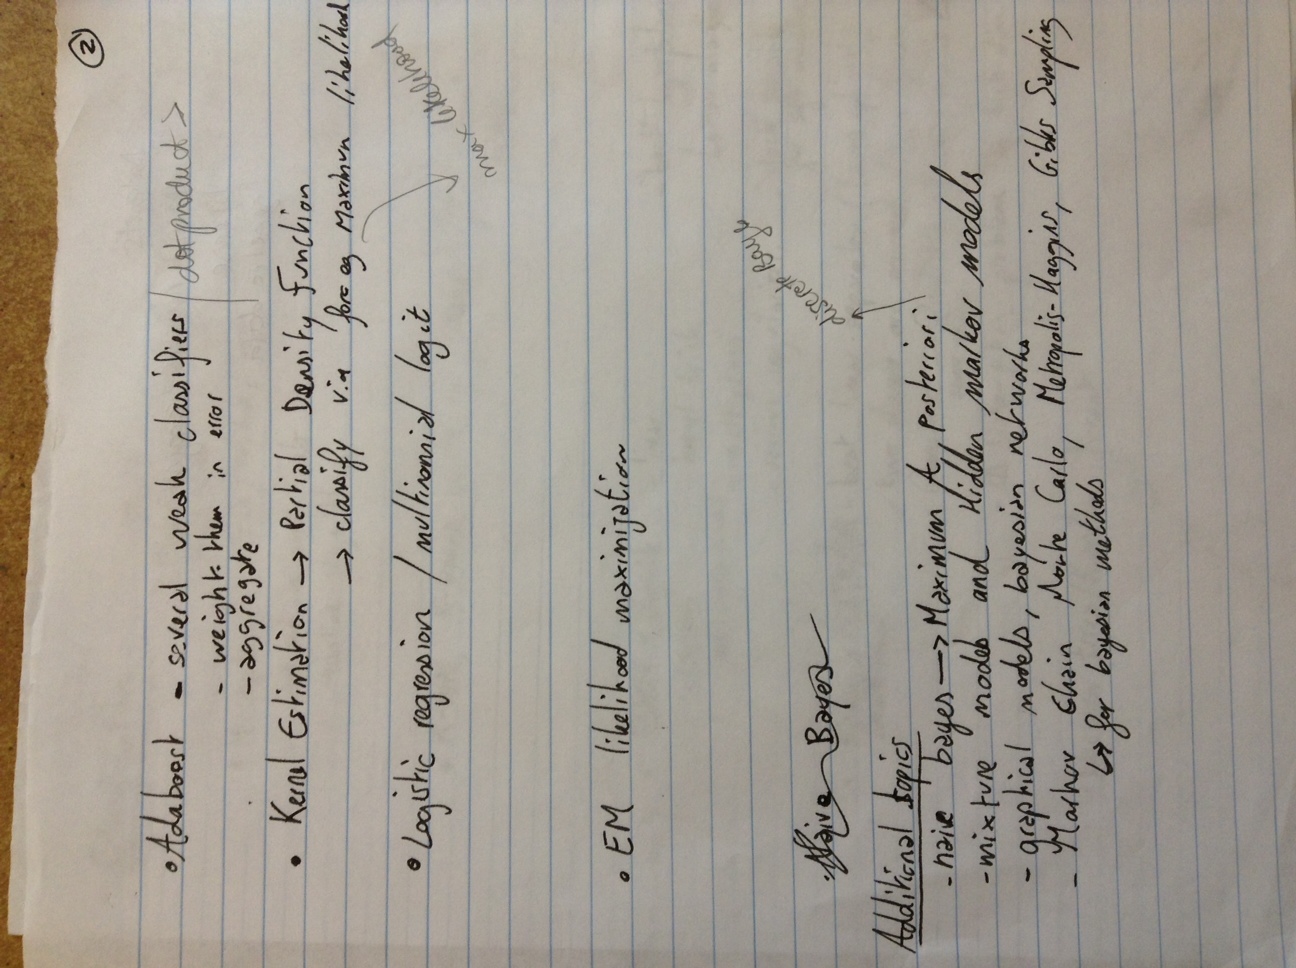 ②
• Adaboost - several weak classifiers / dot product >
- weight them in error
- aggregate
• Kernel Estimation → Partial Density Function
→ classify via for eg Maximum likelihood
max likelihood
• Logistic regression / multinomial logit
• EM likelihood maximization
• Naive Bayes
discrete bayes
Additional topics
- naive bayes → Maximum A posteriori
- mixture modes and Hidden markov models
- graphical models, bayesian networks
- Markov Chain Monte Carlo, Metropolis-Haggins, Gibbs Sampling
↳ for bayesian methods